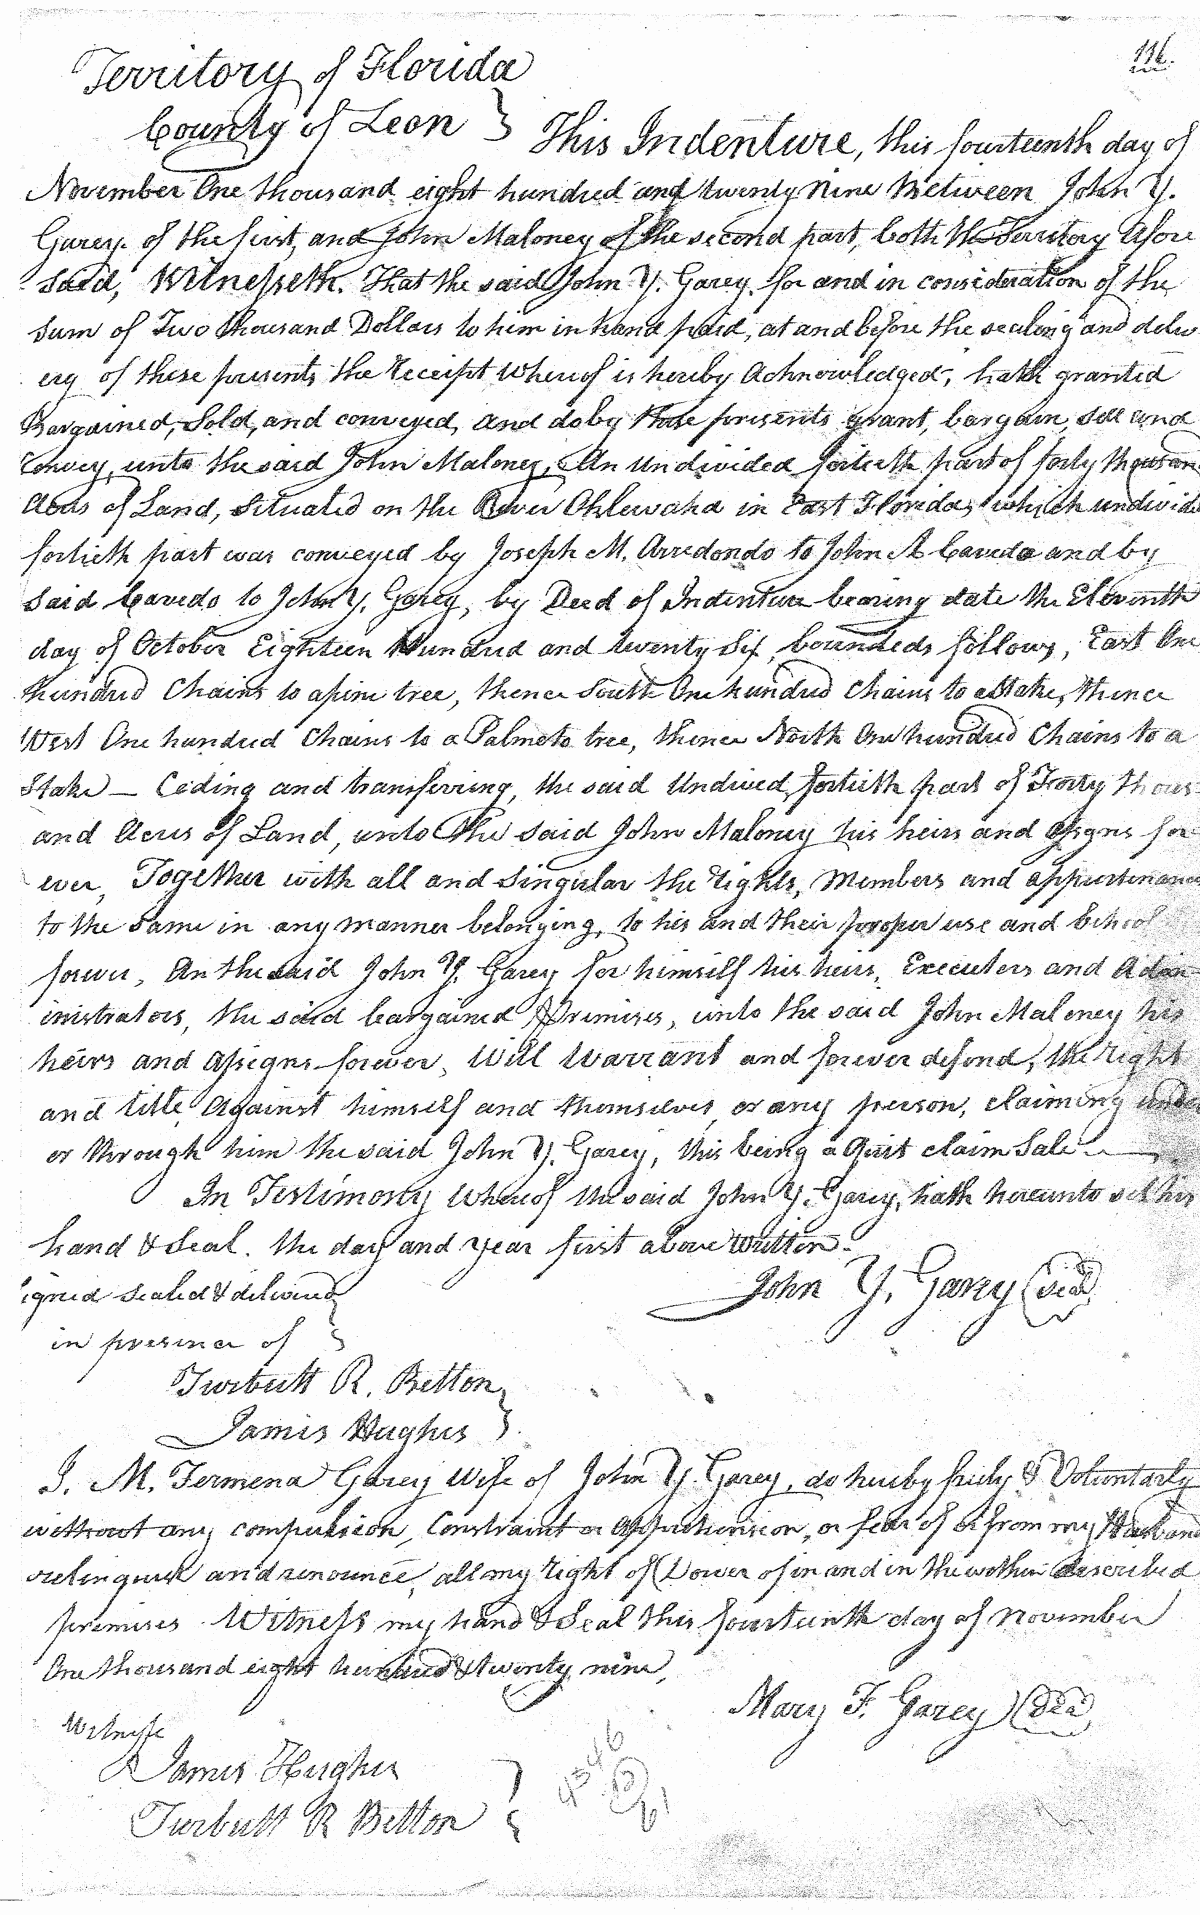 116.
Territory of Florida
County of Leon } This Indenture, this fourteenth day of
November One thousand eight hundred and twenty nine Between John Y.
Garey of the first, and John Maloney of the second part, both the Territory afore
said, Witnesseth. That the said John Y. Garey for and in consideration of the
sum of Two thousand Dollars to him in hand paid, at and before the sealing and deliv
ery of these presents, the receipt whereof is hereby acknowledged, hath granted
Bargained, Sold, and conveyed, and do by these presents grant, bargain, sell and
convey, unto the said John Maloney, An Undivided fortieth part of forty thousand
Acres of Land, situated on the River Ohlewaha in East Florida, which undivided
fortieth part was conveyed by Joseph M. Arredondo to John A Cavedo and by
said Cavedo to John Y. Garey, by Deed of Indenture bearing date the Eleventh
day of October Eighteen Hundred and twenty Six, bounded as follows, East One
hundred Chains to a pine tree, thence South One hundred Chains to a Stake, thence
West One hundred Chains to a Palmeto tree, thence North One hundred Chains to a
Stake — Ceding and transferring, the said Undived fortieth part of Forty thous-
and Acres of Land, unto the said John Maloney his heirs and assigns for
ever, Together with all and singular the rights, members and appurtenances
to the same in any manner belonging, to his and their proper use and behoof
forever, An the said John Y. Garey for himself his heirs, Executers and Adm
inistrators, the said bargained Premises, unto the said John Maloney his
heirs and assigns forever, Will Warrant and forever defend, the right
and title, against himself and themselves, or any person, claiming under
or through him the said John Y. Garey, this being a Quit claim Sale —
In Testimony Whereof the said John Y. Garey, hath hereunto set his
hand & Seal. the day and year first above written.
igned sealed & delivered } John Y. Garey (Seal)
in presence of
Turbutt R. Betton
James Hughes }
I. M. Fermena Garey Wife of John Y. Garey, do hereby freely & Voluntarly
without any compulsion, Constraint or Apprehension, or fear of or from my Husband
relinquish and renounce, all my right of Dower of in and in the within described
premises Witness my hand & Seal this fourteenth day of November
One thousand eight hundred & twenty nine,
Mary F. Garey (Seal)
Witness
James Hughes
Turbutt R Betton }